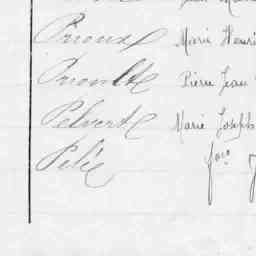 Proux Marie Henri
Proult Pierre Jean
Pelvert Marie Joseph
Pelé